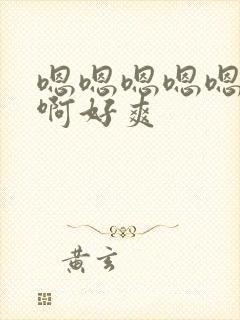 嗯嗯嗯嗯嗯
啊好爽
黄玄